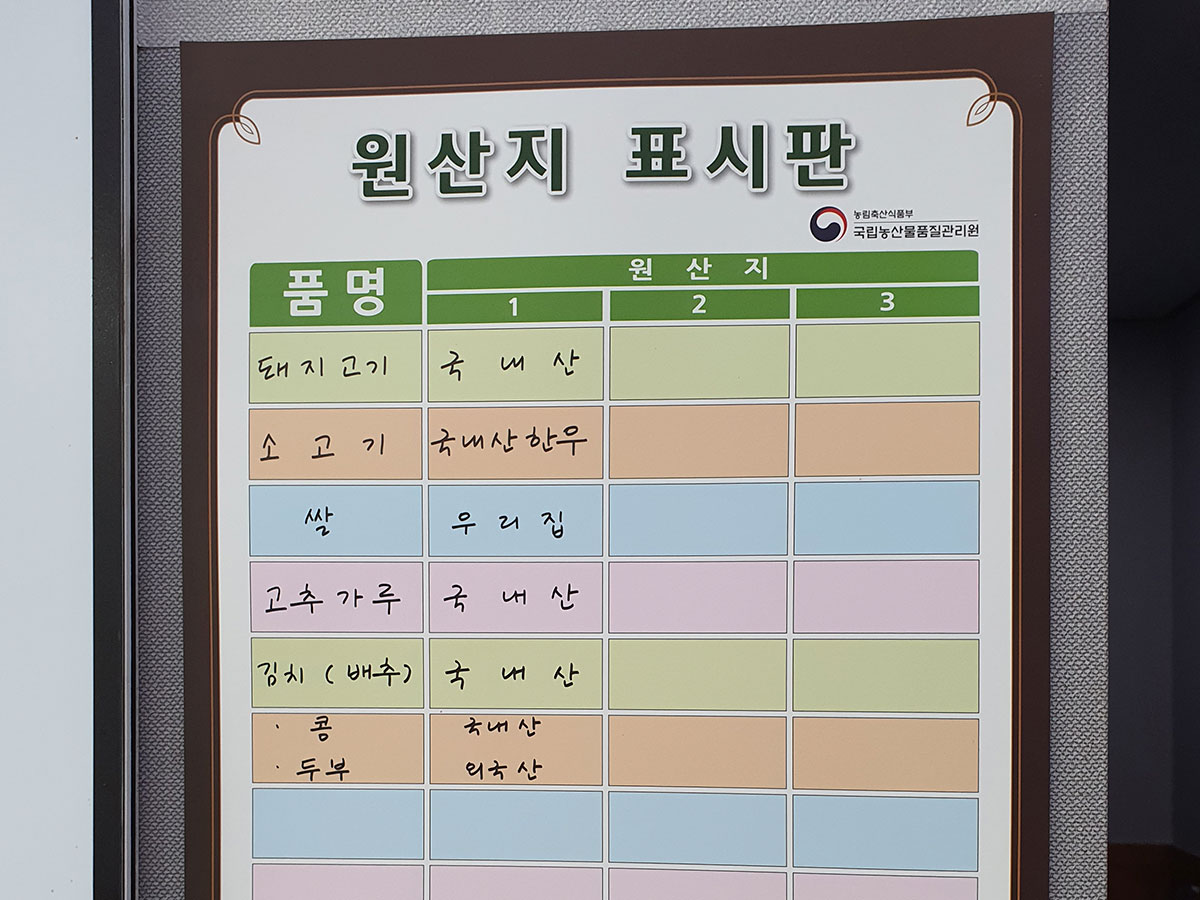 원산지 표시판
농림축산식품부
국립농산물품질관리원
품명 원산지
1 2 3
돼지고기 국내산
소고기 국내산한우
쌀 우리집
고추가루 국내산
김치(배추) 국내산
· 콩 국내산
· 두부 외국산